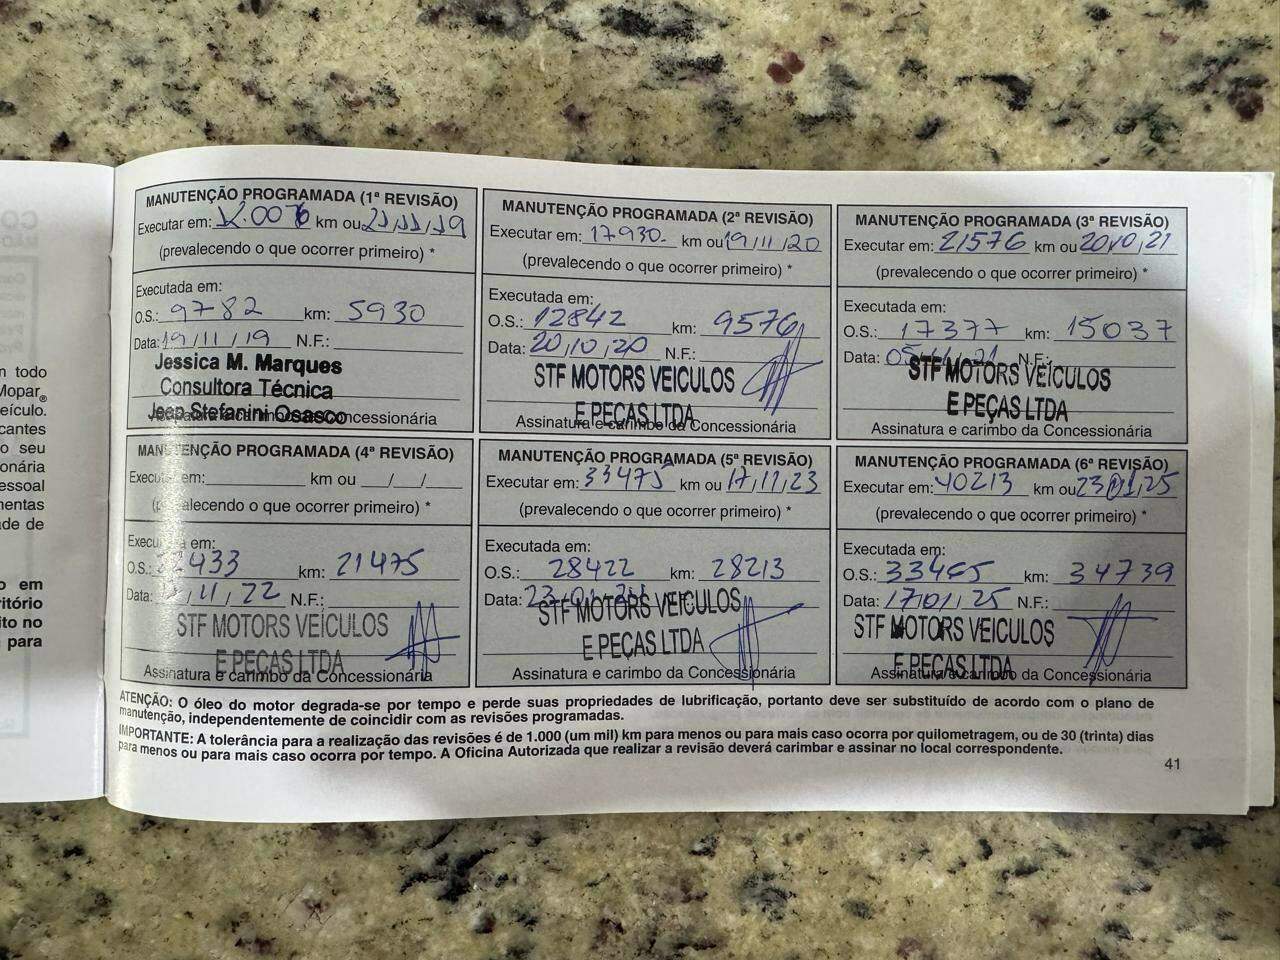 n todo
Mopar®
eículo.
cantes
o seu
onária
essoal
nentas
ade de
o em
ritório
ito no
para
MANUTENÇÃO PROGRAMADA (1ª REVISÃO)
Executar em: km ou 21/11/19
(prevalecendo o que ocorrer primeiro) *
Executada em:
O.S.: 9782 km: 5930
Data: 19/11/19 N.F.:
Jessica M. Marques
Consultora Técnica
Jeep Stefanini Osasco
Assinatura e carimbo da Concessionária
MANUTENÇÃO PROGRAMADA (2ª REVISÃO)
Executar em: 17930 km ou 19/11/20
(prevalecendo o que ocorrer primeiro) *
Executada em:
O.S.: 12842 km: 9576
Data: 20/10/20 N.F.:
STF MOTORS VEICULOS
E PEÇAS LTDA
Assinatura e carimbo da Concessionária
MANUTENÇÃO PROGRAMADA (3ª REVISÃO)
Executar em: 21576 km ou 20/10/21
(prevalecendo o que ocorrer primeiro) *
Executada em:
O.S.: 17377 km: 15037
Data: N.F.:
STF MOTORS VEÍCULOS
E PEÇAS LTDA
Assinatura e carimbo da Concessionária
MANUTENÇÃO PROGRAMADA (4ª REVISÃO)
Executar em: km ou / /
(prevalecendo o que ocorrer primeiro) *
Executada em:
O.S.: km: 21475
Data: /11/22 N.F.:
STF MOTORS VEÍCULOS
E PEÇAS LTDA
Assinatura e carimbo da Concessionária
MANUTENÇÃO PROGRAMADA (5ª REVISÃO)
Executar em: 33475 km ou 17/11/23
(prevalecendo o que ocorrer primeiro) *
Executada em:
O.S.: 28422 km: 28213
Data: N.F.:
STF MOTORS VEICULOS
E PEÇAS LTDA
Assinatura e carimbo da Concessionária
MANUTENÇÃO PROGRAMADA (6ª REVISÃO)
Executar em: 40213 km ou 23/01/25
(prevalecendo o que ocorrer primeiro) *
Executada em:
O.S.: 33465 km: 34739
Data: 17/01/25 N.F.:
STF MOTORS VEÍCULOS
E PEÇAS LTDA
Assinatura e carimbo da Concessionária
ATENÇÃO: O óleo do motor degrada-se por tempo e perde suas propriedades de lubrificação, portanto deve ser substituído de acordo com o plano de
manutenção, independentemente de coincidir com as revisões programadas.
IMPORTANTE: A tolerância para a realização das revisões é de 1.000 (um mil) km para menos ou para mais caso ocorra por quilometragem, ou de 30 (trinta) dias
para menos ou para mais caso ocorra por tempo. A Oficina Autorizada que realizar a revisão deverá carimbar e assinar no local correspondente.
41